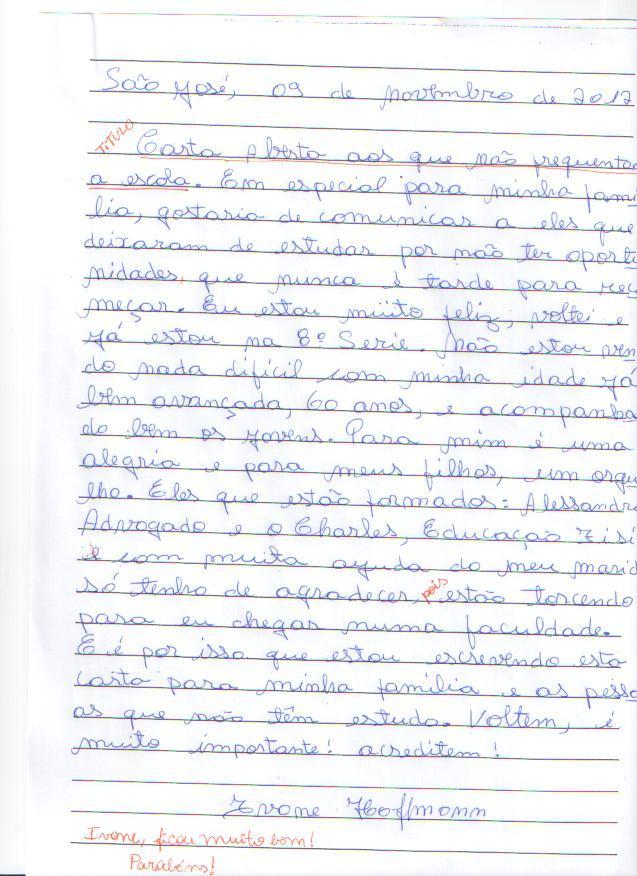 São José, 09 de novembro de 2012
TÍTULO
Carta Aberta aos que não frequentam
a escola. Em especial para minha famí
lia, gostaria de comunicar a eles que
deixaram de estudar por não ter oportu
nidades, que nunca é tarde para reco
meçar. Eu estou muito feliz, voltei e
já estou na 8ª Serie. Não estou ven
do nada difícil com minha idade já
bem avançada, 60 anos, e acompanhan
do bem os jovens. Para mim é uma
alegria e para meus filhos, um orgu
lho. Eles que estão formados: Alessandro
Advogado e o Charles, Educação Físi
e com muita ajuda do meu marido
só tenho de agradecer, pois estão torcendo
para eu chegar numa faculdade.
E é por isso que estou escrevendo esta
carta para minha família e as pesso
as que não têm estudo. Voltem, é
muito importante! acreditem!
Ivone Hoffmann
Ivone, ficou muito bom!
Parabéns!